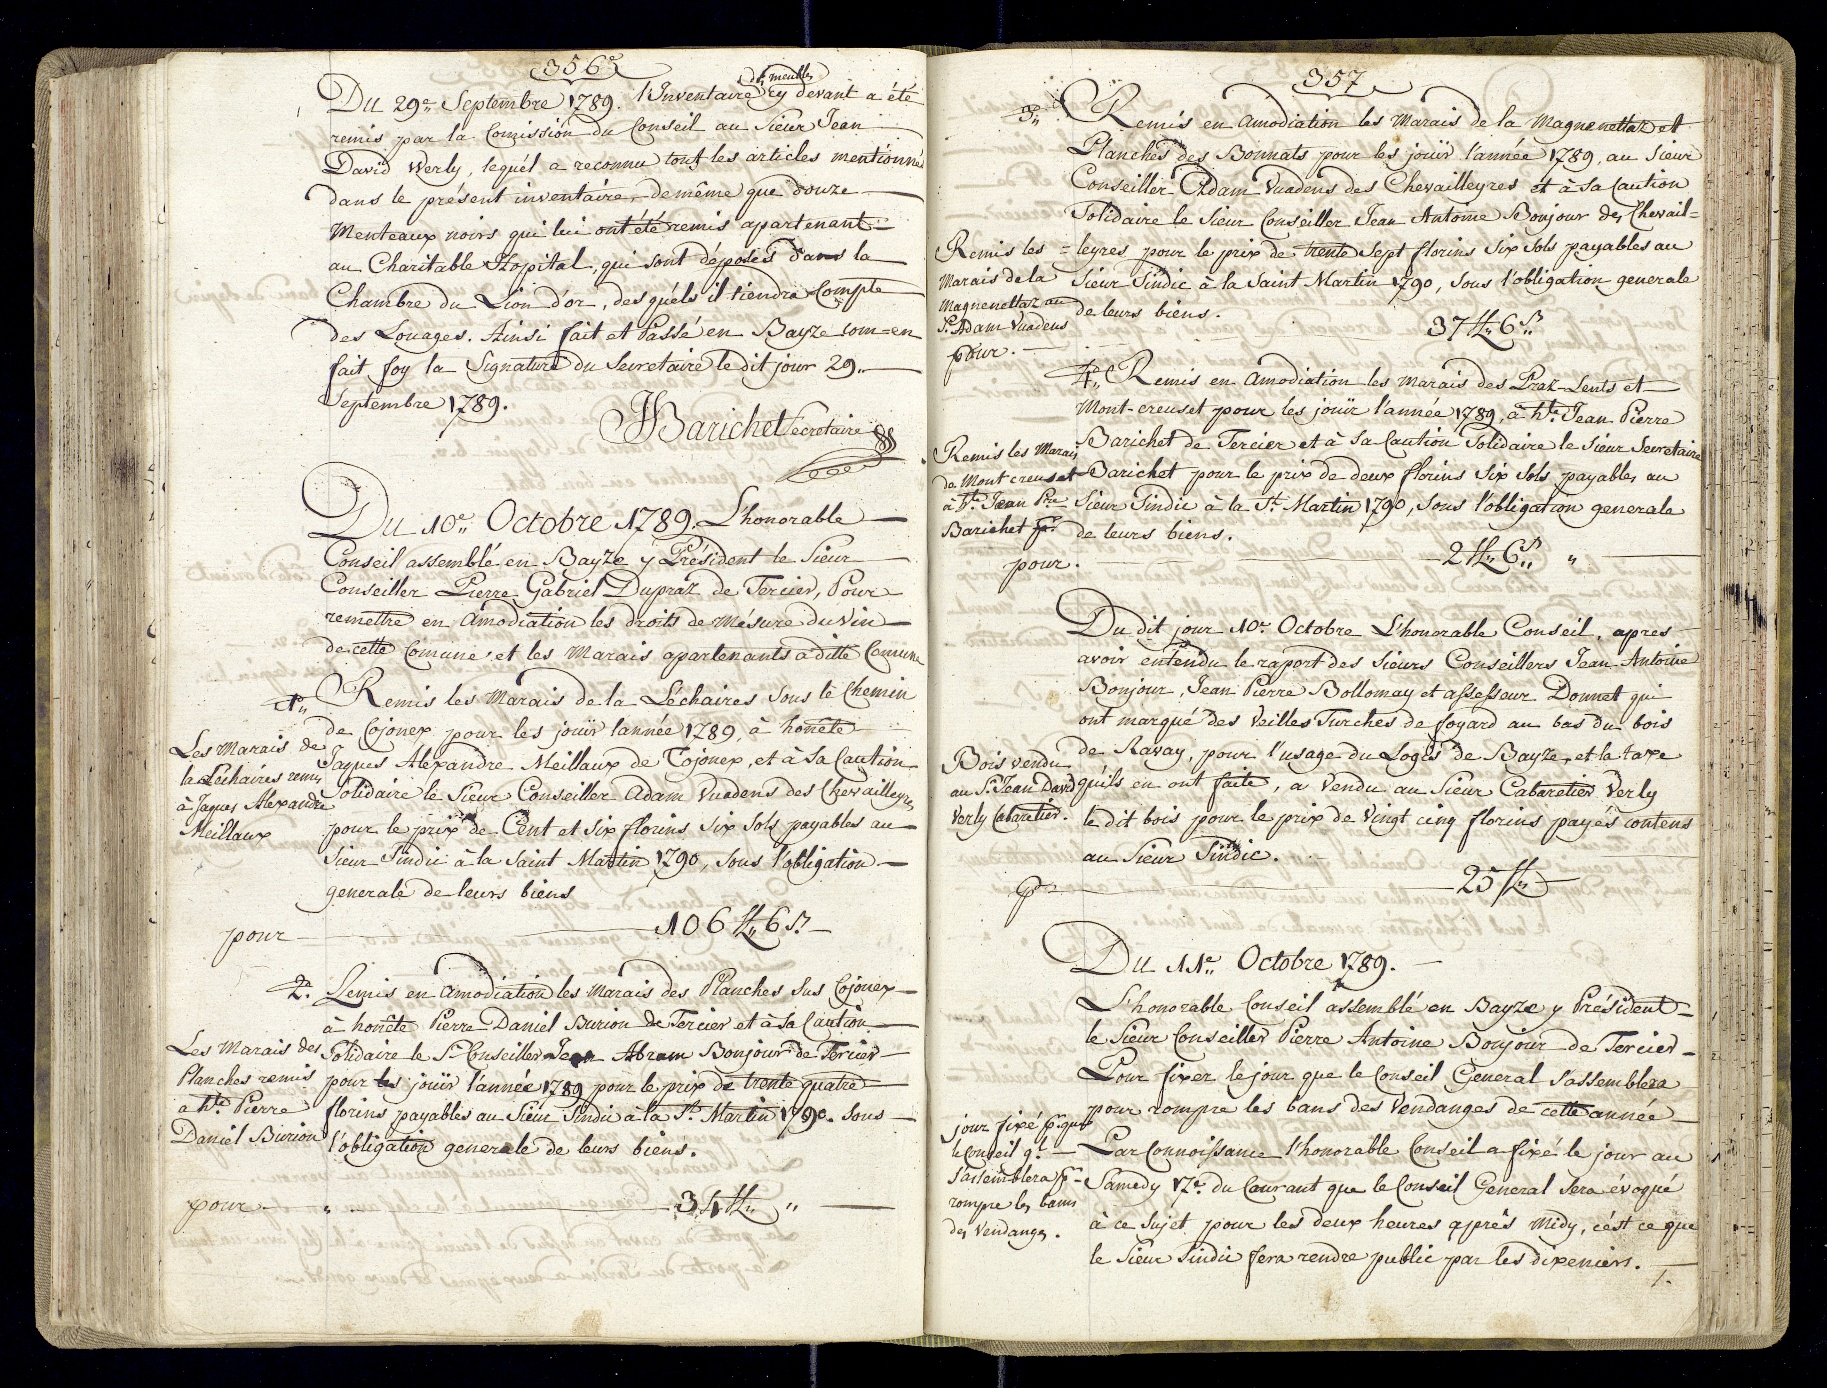 356
Du 29e Septembre 1789. l'Inventaire des meubles cy devant a été
remis par la Comission du Conseil au Sieur Jean
David Verly, lequél a reconnu tout les articles mentionné
dans le présent inventaire, demême que douze
Menteaux noirs qui lui ont été remis apartenant
au Charitable Hopital, qui sont déposés dans la
Chambre du Lion d'or, des quéls il tiendra Compte
des Louages. Ainsi fait et Passé en Bayze com=en
fait foy la Signature du Secretaire le dit jour 29.
Septembre 1789.
JJBarichet Secretaire
Du 10e Octobre 1789. L'honorable
Conseil assemblé en Bayze y Président le Sieur
Conseiller Pierre Gabriel Dupraz de Tercier, Pour
remettre en Amodiation les droits de Mésure du Vin
de cette Comune et les Marais apartenants a ditte Comune
1o Remis les Marais de la Léchaires sous le Chemin
de Cojonex pour les jouïr lannée 1789, à honête
Les Marais de
la Lechaires remis
à Jaques Alexandre
Meillaux
Jaques Alexandre Meillaux de Cojonex, et à Sa Caution
Solidaire le Sieur Conseiller Adam Vuadens des Chevailleyres
pour le prix de Cent et Six florins Six Sols payables au
Sieur Sindic à la Saint Martin 1790, sous l'obligation
generale de leurs biens
pour 106 fl,, 6 s.
2o. Remis en Amodiation les Marais des Planches Sus Cojonex
à honête Pierre Daniel Burion de Tercier et à Sa Caution
Les Marais des
Planches remis
a hte. Pierre
Daniel Burion
Solidaire le Sr. Conseiller Jean Abram Bonjour de Tercier
pour les jouïr l'année 1789 pour le prix de trente quatre
florins payables au Sieur Sindic à la St. Martin 1790. Sous
l'obligation generale de leurs biens.
pour " 34 fl,, "
357
3,, Remis en Amodiation les Marais de la Magnenettaz et
Planches des Bonnats pour les jouïr l'année 1789, au Sieur
Conseiller Adam Vuadens des Chevailleyres et à Sa Caution
Solidaire le Sieur Conseiller Jean Antoine Bonjour des Chevail=
Remis les
Marais de la
Magnenettaz au
Sr. Adam Vuadens
pour.
=leyres pour le prix de trente Sept florins Six Sols payables au
Sieur Sindic à la Saint Martin 1790, Sous l'obligation generale
de leurs biens.
37 fl,, 6 s,,
4o,, Remis en Amodiation les Marais des Praz-Lents et
Mont-creuset pour les jouïr l'année 1789, à hte Jean Pierre
Barichet de Tercier et à Sa Caution Solidaire le Sieur Secretaire
Remis les Marais
de Mont creuset
à hte. Jean Pre
Barichet pr.
Barichet pour le prix de deux florins Six Sols payables au
Sieur Sindic à la St. Martin 1790, Sous l'obligation generale
de leurs biens.
pour. 2 fl,, 6 s,, "
Du dit jour 10e Octobre L'honorable Conseil, apres
avoir entendu le raport des Sieurs Conseillers Jean Antoine
Bonjour, Jean Pierre Bollomay et assesseur Donnet qui
ont marqué des Veilles Turches de foyard au bas du bois
Bois vendu
au Sr. Jean David
Verly Cabaretier.
de Ravay, pour l'usage du Logis de Bayze, et la taxe
qu'ils en ont faite, a Vendu au Sieur Cabaretier Verly
le dit bois pour le prix de Vingt cinq florins payés contens
au Sieur Sindic.
pr 25 fl,,
Du 11e,, Octobre 1789.
L'honorable Conseil assemblé en Bayze y Président
le Sieur Conseiller Pierre Antoine Bonjour de Tercier
Pour fixer le jour que le Conseil General s'assemblera
pour rompre les bans des Vendanges de cette année
jour fixé pr. que
le Conseil gl.
s'assemblera pr
rompre les bans
des Vendanges.
Par Connoissance l'honorable Conseil a fixé le jour au
Samedy 17e. du Courant que le Conseil General sera évoqué
à ce Sujet pour les deux heures après Midy, c'ést ce que
le Sieur Sindic fera rendre public par les dixeniers.